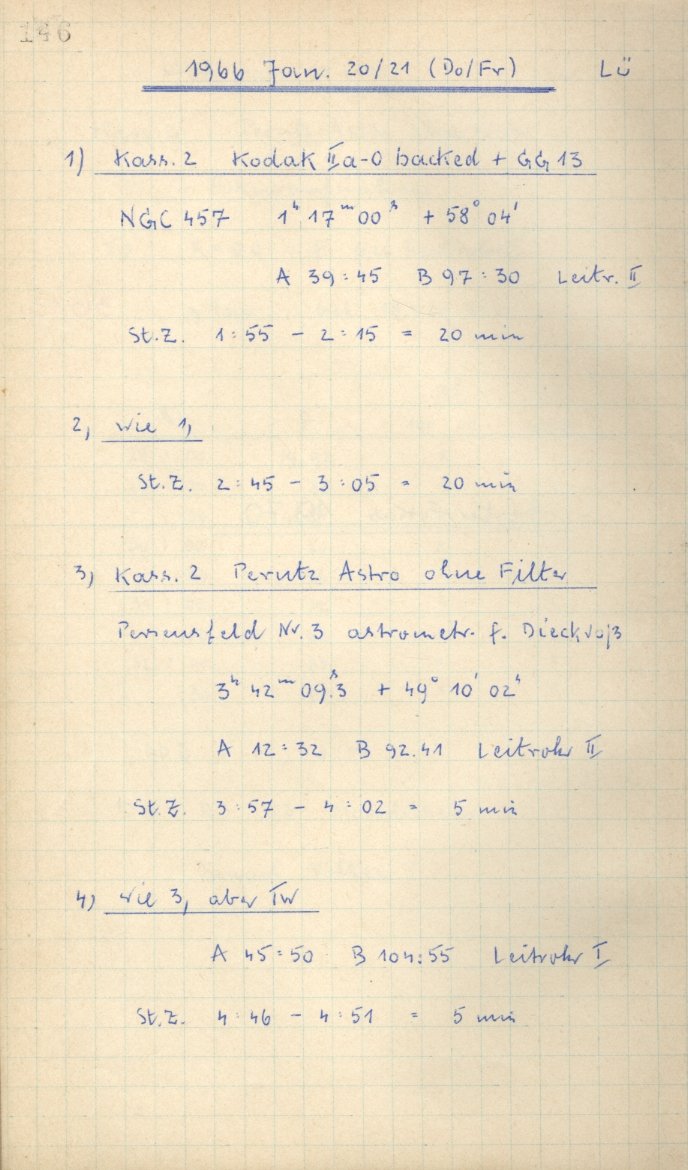 146
1966 Jan. 20/21 (Do/Fr) Lü
1) Kass. 2 Kodak IIa-O backed + GG 13
NGC 457 1ʰ 17ᵐ 00ˢ + 58° 04'
A 39:45 B 97:30 Leitr. II
St.Z. 1:55 - 2:15 = 20 min
2, wie 1,
St.Z. 2:45 - 3:05 = 20 min
3, Kass. 2 Perutz Astro ohne Filter
Perseusfeld Nr. 3 astrometr. f. Dieckvoß
3ʰ 42ᵐ 09ˢ.3 + 49° 10' 02"
A 12:32 B 92.41 Leitrohr II
St.Z. 3:57 - 4:02 = 5 min
4) wie 3, aber TW
A 45:50 B 104:55 Leitrohr I
St.Z. 4:46 - 4:51 = 5 min